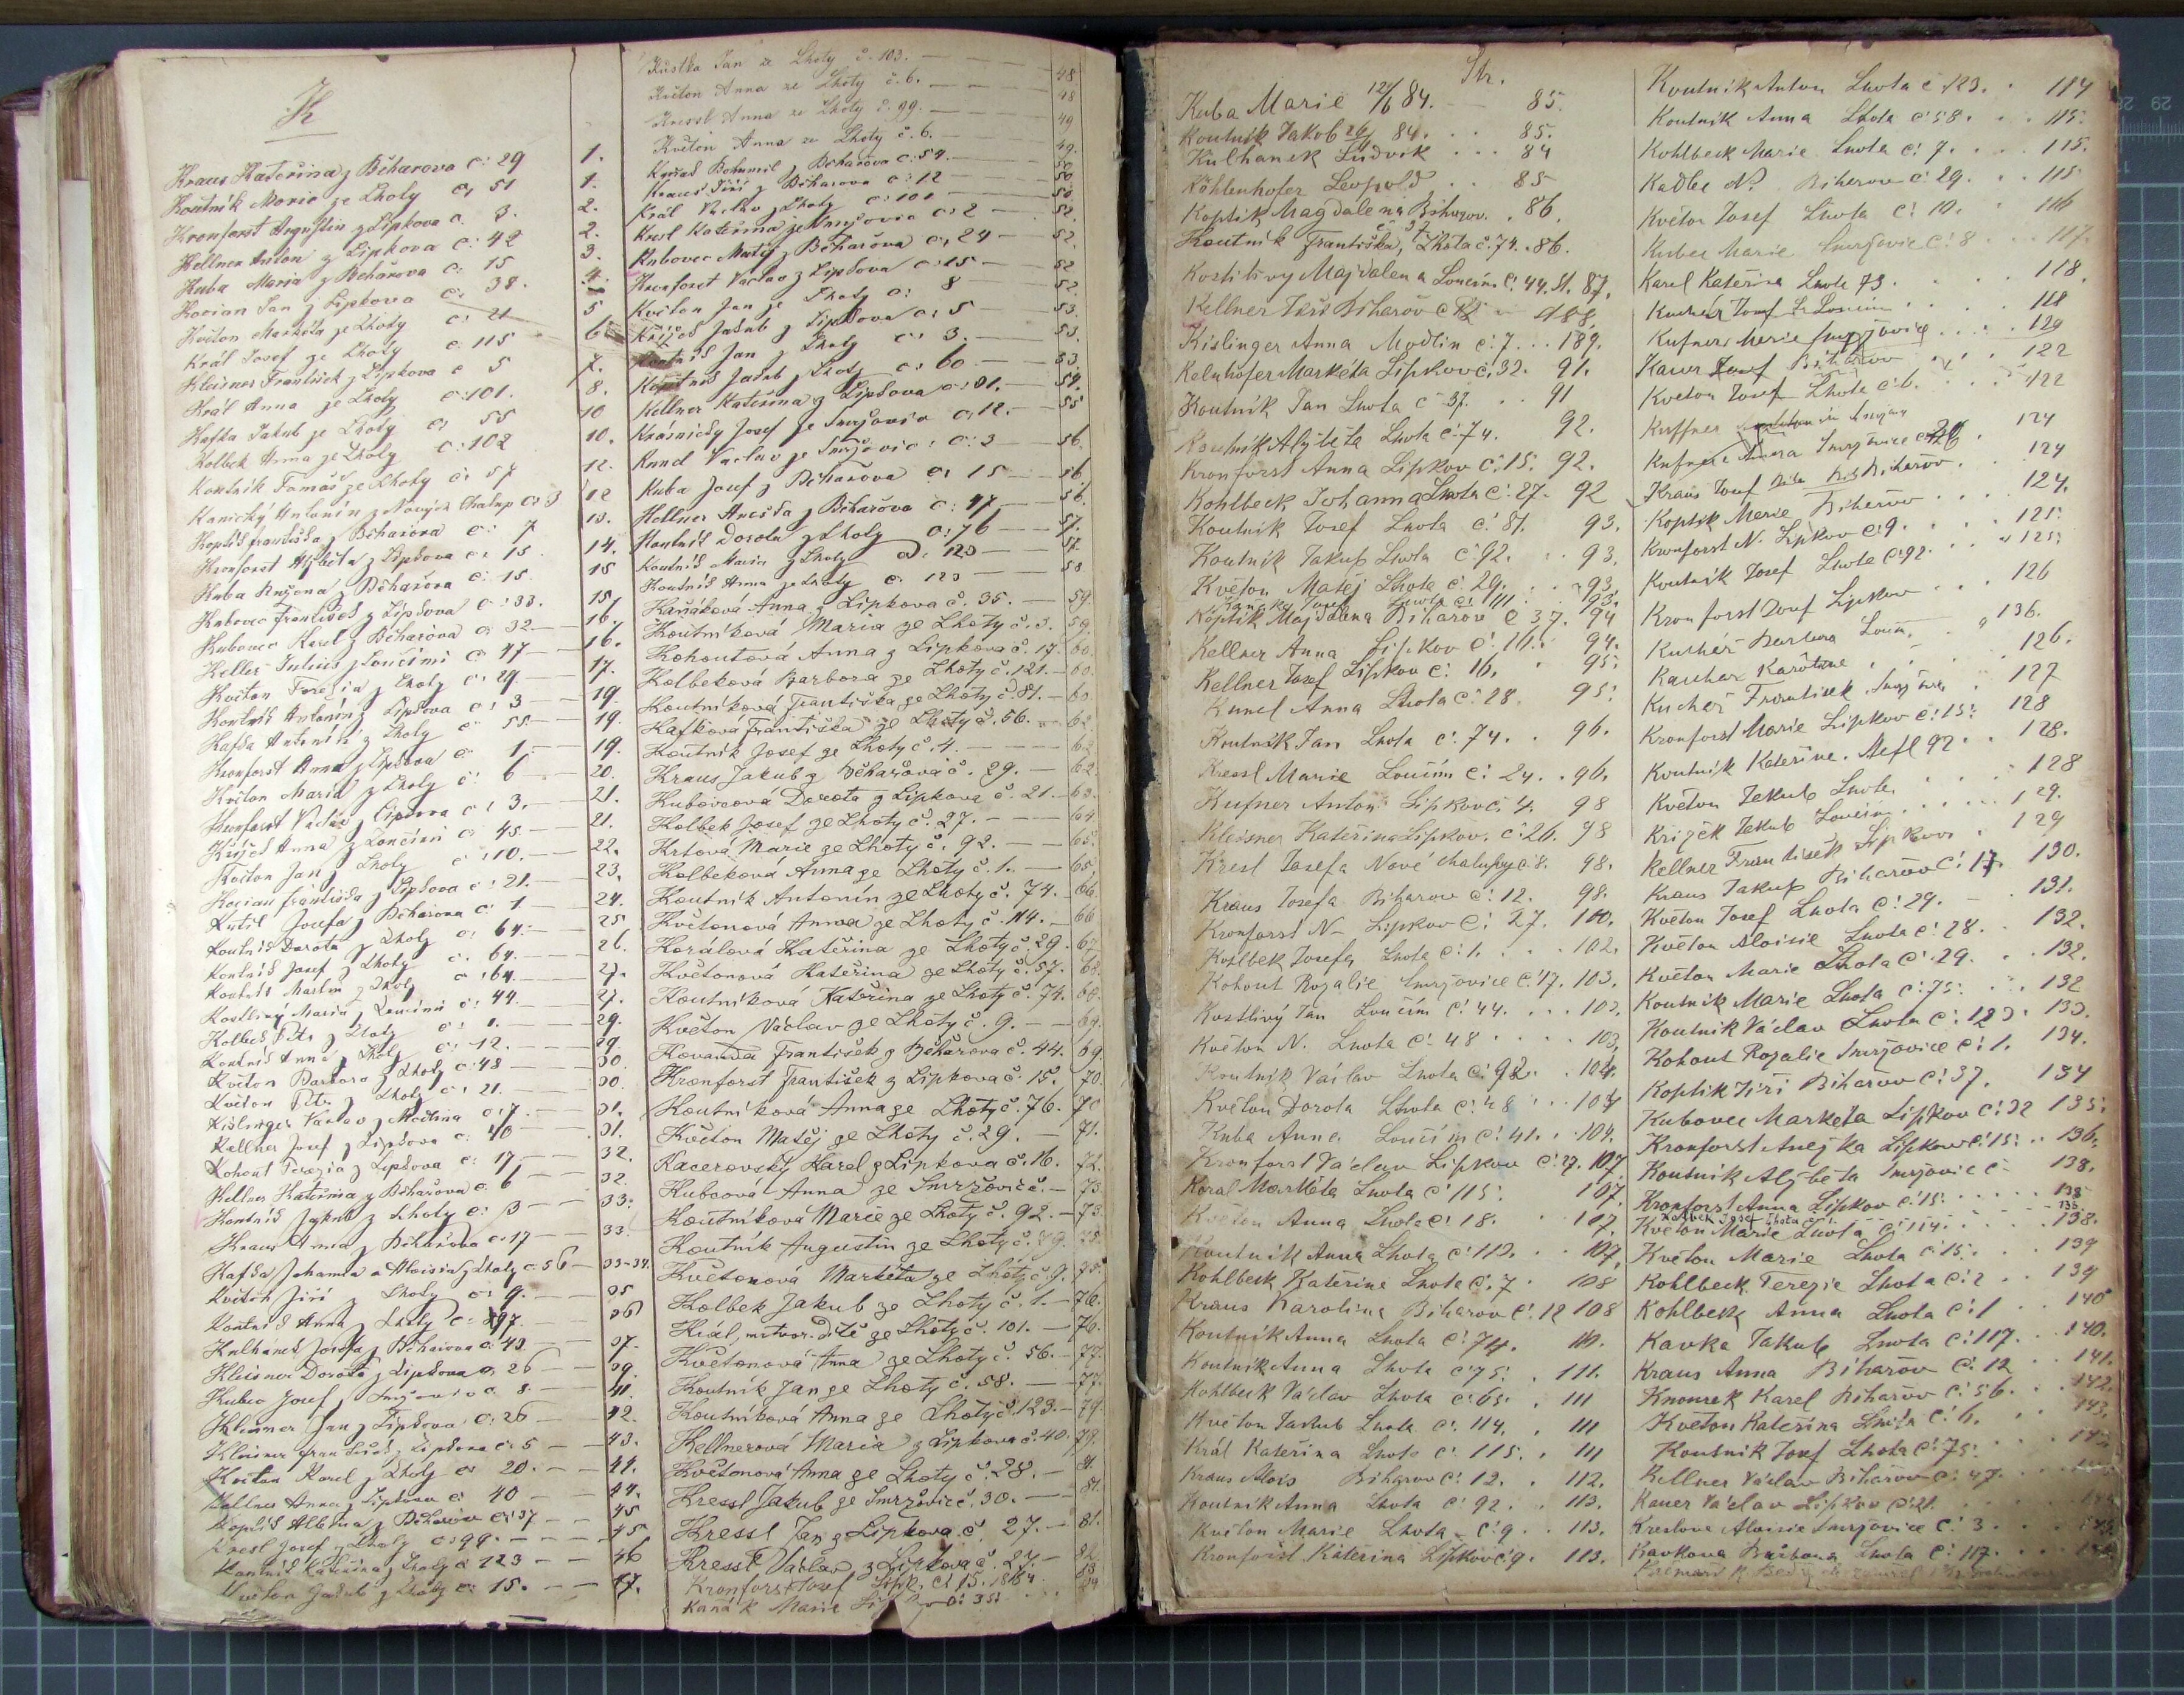 K
Kraus Kateřina z Běharova č: 29 1.
Koutník Marie ze Lhoty č. 51 1.
Kronforst Augustin z Lipkova č. 3. 2.
Kellner Anton z Lipkova č: 42 2.
Kuba Maria z Běhařova č: 15 3.
Kocian Jan z Lipkova č: 38. 4.
Květon Markéta ze Lhoty č: 21 5
Král Josef ze Lhoty č. 115 6
Kleisner František z Lipkova č 5 7.
Král Anna ze Lhoty č:101. 8.
Kafka Jakub ze Lhoty č: 55 10
Kolbek Anna ze Lhoty č:102 10.
Koutník Tomáš ze Lhoty č: 57 12.
Kanický Antonín z Nových Chalup č: 3 12
Koptík Františka z Běhařova č: 7 13.
Kronforst Alžběta z Lipkova č: 15 14.
Kuba Růžena z Běhařova č: 15. 15
Kubovec František z Lipkova č: 33. 15.
Kubovec Karel z Běhařova č: 32. 16.
Keller Julius z Loučimi č: 47 16.
Květon Terezia z Lhoty č: 29. 17.
Koutník Antonín z Lipkova č: 3 19.
Kafka Antonín z Lhoty č: 55 19.
Kronforst Anna z Lipkova č: 1. 19.
Květon Maria z Lhoty č: 6 20.
Kronforst Václav z Lipkova č: 3. 21.
Křížek Anna z Loučimi č: 45. 21.
Květon Jan z Lhoty č: 10. 22.
Kocian Františka z Lipkova č: 21. 23.
Kutil Josefa z Běhařova č: 1 24.
Koutník Dorota z Lhoty č: 64. 25
Koutník Josef z Lhoty č. 64. 26.
Koutník Martin z Lhoty č: 64. 27.
Kostlivý Maria z Loučimi č: 44. 27.
Kolbek Petr z Lhoty č: 1. 29.
Koutník Anna z Lhoty č: 12. 29.
Květon Barbora z Lhoty č: 48 30.
Květon Petr z Lhoty č: 21. 30.
Kislinger Václav z Modlína č: 7. 31.
Kellner Josef z Lipkova č. 40 31.
Kohout Terezia z Lipkova č: 17. 32.
Kellner Kateřina z Běhařova č. 6 32.
Koutník Jakub z Lhoty č: 3 33.
Kraus Anna z Běhařova č: 17 33.
Kafka Johanna a Aloisia z Lhoty č: 56 33-34.
Květon Jiří z Lhoty č: 9. 35
Koutník Anna z Lhoty č: 97. 36
Kulhanek Josefa z Běhařova č: 43 37.
Kleisner Dorota z Lipkova č: 26 39.
Kubec Josef z Smržovic č. 8. 41.
Kleisner Jan z Lipkova č: 26 42.
Kleisner František z Lipkova č: 5 43.
Květon Karel z Lhoty č: 20. 44.
Kellner Anna z Lipkova č: 40 44.
Koptík Albína z Běhařov č: 37 45
Kresl Josef z Lhoty č: 99. 45
Koutník Kateřina z Lhoty č 123 46
Květon Jakub z Lhoty č: 15. 47.
Kůstka Jan ze Lhoty č. 103. 48
Květon Anna ze Lhoty č. 6. 48
Kressl Anna ze Lhoty č. 99. 49
Květon Anna ze Lhoty č. 6. 49.
Bohumil z Běhařova č: 54. 50
Kraus Jiří z Běhařova č: 12 50
Král Václav z Lhoty č: 101 50.
Kresl Kateřina ze Smržovic č: 2 52.
Kubovec Matěj z Běhařova č: 24 52.
Kronforst Václav z Lipkova č: 15 52
Květon Jan ze Lhoty č: 8 52.
Křížek Jakub z Lipkova č: 5 53.
Koutník Jan z Lhoty č: 3. 53.
Koutník Jakub z Lhoty č: 60 53
Kellner Kateřina z Lipkova č: 31. 54.
Krásnický Josef ze Smržovic č: 12. 55
Kunel Václav ze Smržovic č: 3 56.
Kuba Josef z Běhařova č: 15 56.
Kellner Anežka z Běhařova č: 47 56.
Koutník Dorota z Lhoty č: 76 57.
Koutník Maria z Lhoty č: 123 57.
Koutník Anna ze Lhoty č: 123 58
Anna z Lipkova č. 35. 59.
Koutníková Maria ze Lhoty č. 3. 59.
Kohoutová Anna z Lipkova č. 17. 60.
Kolbeková Barbora ze Lhoty č. 121. 60.
Koutníková Františka ze Lhoty č. 81. 60
Kafková Františka ze Lhoty č. 56. 62
Koutník Josef ze Lhoty č. 4. 62
Kraus Jakub z Běhařova č. 29. 62.
Kubovcová Dorota z Lipkova č. 21. 63.
Kolbek Josef ze Lhoty č. 27. 64
Krtová Marie ze Lhoty č. 92. 65.
Kolbeková Anna ze Lhoty č. 1. 65
Koutník Antonín ze Lhoty č. 74. 66
Květonová Anna ze Lhoty č. 114. 66
Korálová Kateřina ze Lhoty č. 29. 67
Květonová Kateřina ze Lhoty č. 57. 68.
Koutníková Kateřina ze Lhoty č. 74. 68.
Květon Václav ze Lhoty č. 9. 69.
Kovanda František z Běhařova č. 44. 69
Kronforst František z Lipkova č. 15. 70.
Koutníková Anna ze Lhoty č. 76. 70
Květon Matěj ze Lhoty č. 29. 71.
Kacerovský Karel z Lipkova č. 16. 72.
Kubcová Anna ze Smržovic č. 73
Koutníková Marie ze Lhoty č. 92. 73
Koutník Augustin ze Lhoty č. 79. 75.
Květonová Markéta ze Lhoty č. 9. 75
Kolbek Jakub ze Lhoty č. 1. 76.
Král, mrtvor. Dítě ze Lhoty č. 101. 76.
Květonová Anna ze Lhoty č. 56. 77.
Koutník Jan ze Lhoty č. 58. 77.
Koutníková Anna ze Lhoty č. 123. 79
Kellnerová Maria z Lipkova č. 40. 79.
Květonová Anna ze Lhoty č. 28. 81.
Kressl Jakub ze Smržovic č. 30. 81.
Kressl Jan z Lipkova č. 27. 81.
Kressl Václav z Lipkova č. 27. 82
Kronforst Josef Lipk. č: 15. 1884 83
Kaňák Marie č: 35: 84
Str.
Kuba Marie 12/6 84. 85.
Koutník Jakob 84. 85.
Kulhanek Ludvik 84
Köhlenhofer Leopold 85
Koptik Magdalena Biharov. 86.
Koutník Františka, Lhota č. 74. 86.
Kostlivy Majdalena Loučim č. 44. St. 87.
Kellner Jiří Biharov č 88.
Kislinger Anna Modlin č: 7. 189.
Kelnhofer Markéta Lipkov č. 32. 91.
Koutník Jan Lhota č 37. 91
Koutník Alžběta Lhota č: 74. 92.
Kronforst Anna Lipkov č: 15. 92.
Kohlbeck Johanna Lhota č: 27. 92
Koutnik Josef Lhota č: 81. 93.
Koutník Jakup Lhota č 92. 93.
Květon Matěj Lhota č 29. 93.
Lhota č: 111. 93.
Koptik Majdalena Biharov č 37. 94
Kellner Anna Lipkov č: 16. 94.
Kellner Josef Lipkov č: 16. 95:
Kunel Anna Lhota č: 28. 95:
Koutník Jan Lhota č: 74. 96.
Kressl Marie Loučim č: 24. 96.
Kufner Anton Lipkov č. 4. 98
Kleisner Kateřina Lipkov. č: 26. 98
Kresl Josefa Nové chalupy č: 8. 98.
Kraus Josefa Biharov č: 12. 98.
Kronforst N- Lipkov č: 27. 100.
Kohlbek Josefa Lhota č: 1. 102.
Kohout Rozalie Smržovice č: 17. 103.
Kostlivý Jan Loučim č: 44. 103.
Květon N. Lhota č: 48 103.
Koutnik Václav Lhota č: 92. 104.
Květon Dorota Lhota č: 48 104
Kuba Anna Loučim č: 41. 104.
Kronforst Václav Lipkov č: 27. 107
Koral Markéta Lhota č 115: 107.
Květon Anna Lhota č: 18. 107.
Koutník Anna Lhota č: 113. 107.
Kohlbeck Kateřina Lhota č. 7 108
Kraus Karolina Biharov č: 12 108
Koutník Anna Lhota č: 74. 110.
Koutnik Anna Lhota č: 75: 111.
Kohlbeck Václav Lhota č: 65: 111
Květon Jakub Lhota č: 114. 111
Král Kateřina Lhota č: 115. 111
Kraus Alois Biharov č: 12. 112.
Koutník Anna Lhota č: 92. 113.
Květon Marie Lhota č: 9. 113.
Kronforst Kateřina Lipkov č: 9. 113.
Koutnik Anton Lhota č 123. 114
Koutník Anna Lhota č: 58. 115:
Kohlbeck Marie Lhota č: 7. 115.
Kadlec N. Biharov č: 29. 115
Květon Josef Lhota č: 10. 116
Kubec Marie Smržovic č: 8 117.
Karel Kateřina Lhota 73. 118.
Kuchér Josef Loučim 118
Kufner Marie Smržovice 120
Kauer Josef Biharov 122
Květon Josef Lhota č: 6. 122
Kuffner 124
Kufner Anna Smržovice 124
Kraus Josef Biharov. 124
Koptik Marie Biharov 124.
Kronforst N. Lipkov č: 9. 125:
Koutník Josef Lhota č: 92. 125:
Kronforst Josef Lipkov 126
Kuchér Barbora Loučim 136.
Kauher Karoline 126.
Kuchér Frantisek 127
Kronforst Marie Lipkov č: 15: 128
Koutnik Kateřina. 92 128.
Květon Jakub Lhota 128
Krizek Jakub Loučim 129.
Kellner František Lipkov 129
Kraus Jakup Biharov č: 17. 130.
Květon Josef Lhota č: 29. 131.
Květon Aloisie Lhota č: 28. 132.
Květon Marie Lhota č: 29. 132.
Koutník Marie Lhota č: 75: 132
Koutnik Václav Lhota č: 123. 133.
Kohout Rozalie Smržovice č: 1. 134.
Koptik Jiři Biharov č: 37. 134
Kubovec Markéta Lipkov č: 32 135:
Kronforst Anežka Lipkov č: 15: 136.
Koutnik Alžběta Smržovic č 138.
Kronforst Anna Lipkov č. 15: 138
Kolbek Josef Lhota 138.
Květon Marie Lhota č: 114. 138.
Květon Marie Lhota č: 15. 139
Kohlbeck Terezie Lhota č: 2 139
Kohlbeck Anna Lhota č: 1 140
Kavka Jakub Lhota č: 117. 140.
Kraus Anna Biharov č: 12 141.
Knourek Karel Biharov č: 56. 142.
Květon Kateřina Lhota č: 6. 143.
Koutnik Josef Lhota č: 75:
Kellner Václav Biharov č: 47.
Kauer Václav Lipkov č: 21.
Kreslova Aloisie Smržovice č: 3
Kavkova Barbora Lhota č: 117.